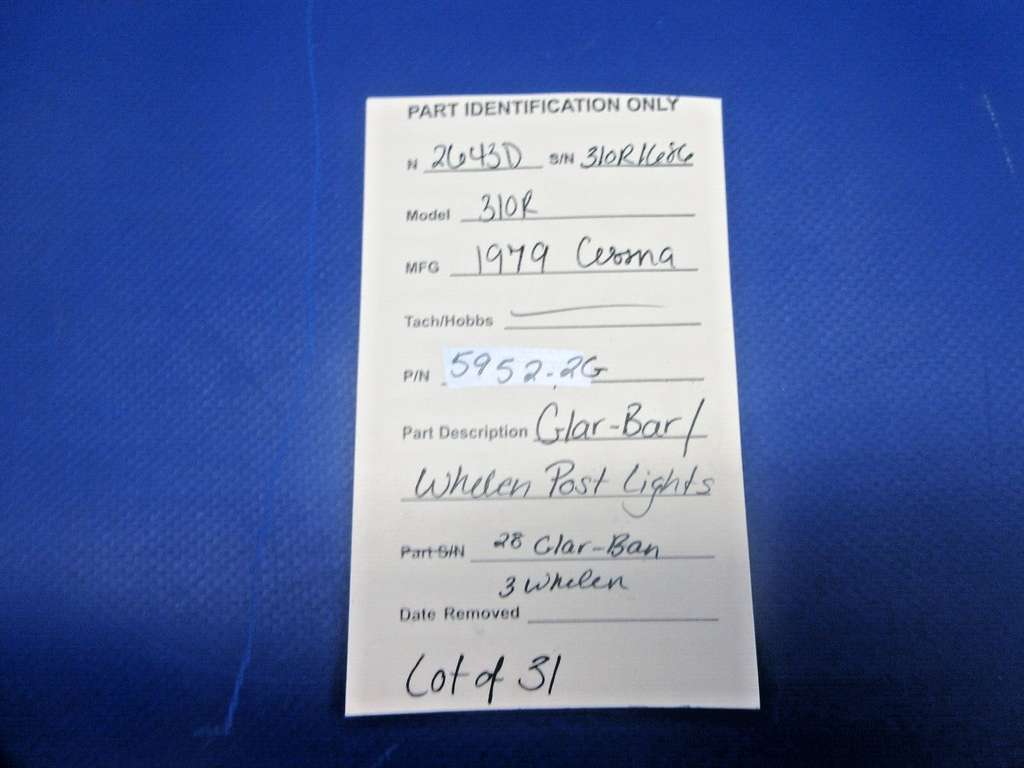 PART IDENTIFICATION ONLY
N 2643D S/N 310R1686
Model 310R
MFG 1979 Cessna
Tach/Hobbs
P/N 5952-2G
Part Description Glar-Bar/
Whelen Post Lights
Part S/N 28 Glar-Ban
3 Whelen
Date Removed
Lot of 31